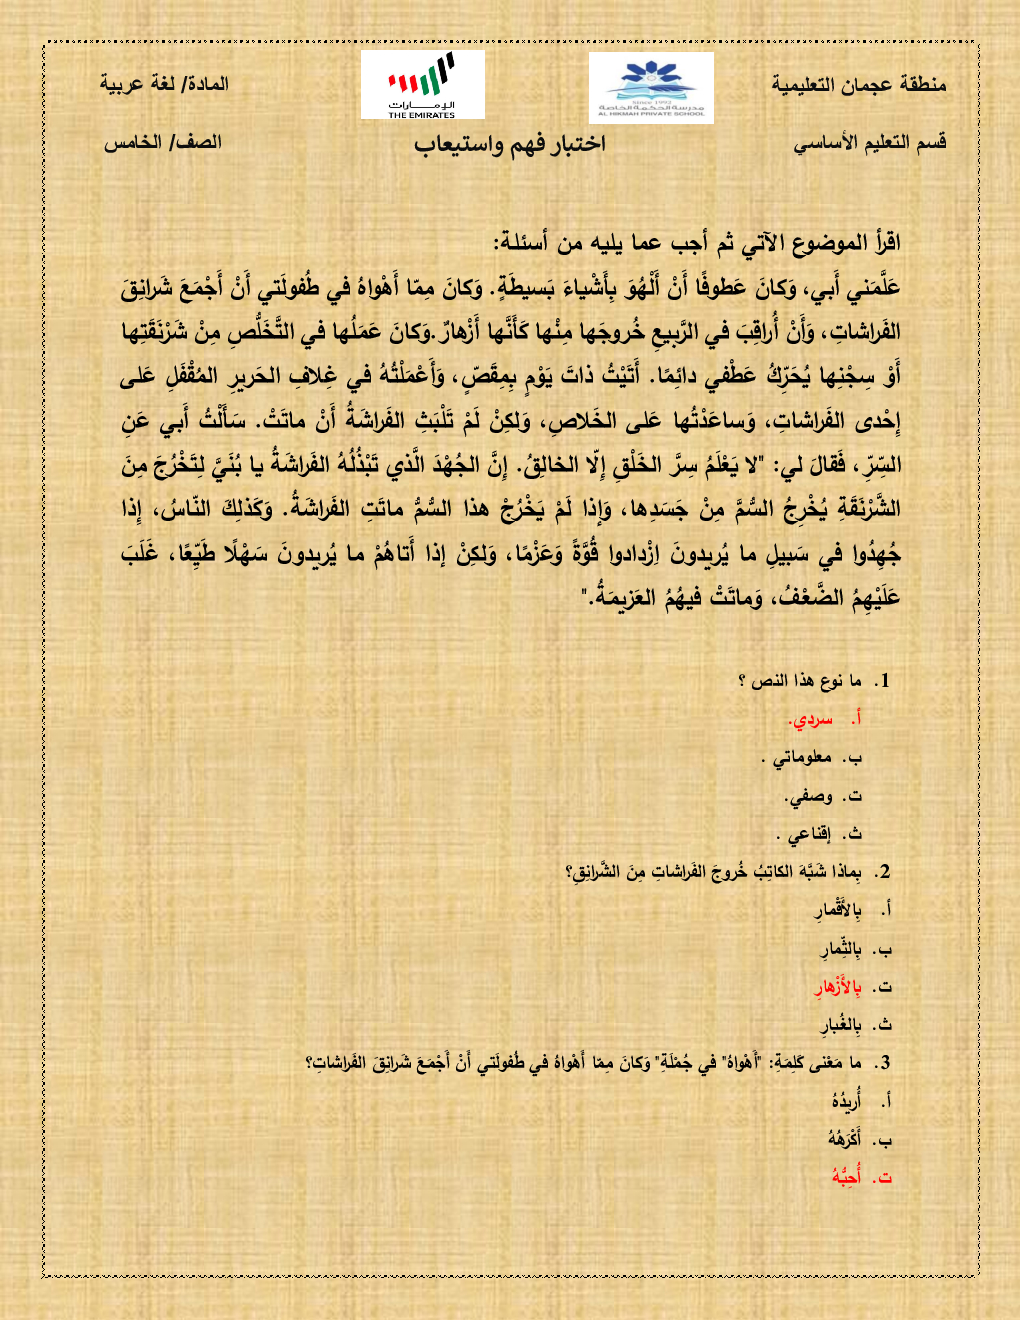 منطقة عجمان التعليمية
Since 1992
مدرسة الحكمة الخاصة
AL HIKMAH PRIVATE SCHOOL
الإمارات
THE EMIRATES
المادة/ لغة عربية
قسم التعليم الأساسي
اختبار فهم واستيعاب
الصف/ الخامس
اقرأ الموضوع الآتي ثم أجب عما يليه من أسئلة:
عَلَّمَني أَبي، وَكانَ عَطوفًا أَنْ أَلْهُوَ بِأَشْياءَ بَسيطَةٍ. وَكانَ مِمّا أَهْواهُ في طُفولَتي أَنْ أَجْمَعَ شَرانِقَ
الفَراشاتِ، وَأَنْ أُراقِبَ في الرَّبيعِ خُروجَها مِنْها كَأَنَّها أَزْهارٌ.وَكانَ عَمَلُها في التَّخَلُّصِ مِنْ شَرْنَقَتِها
أَوْ سِجْنِها يُحَرِّكُ عَطْفي دائِمًا. أَتَيْتُ ذاتَ يَوْمٍ بِمِقَصٍّ، وَأَعْمَلْتُهُ في غِلافِ الحَريرِ المُقْفَلِ عَلى
إِحْدى الفَراشاتِ، وَساعَدْتُها عَلى الخَلاصِ، وَلكِنْ لَمْ تَلْبَثِ الفَراشَةُ أَنْ ماتَتْ. سَأَلْتُ أَبي عَنِ
السِّرِّ، فَقالَ لي: "لا يَعْلَمُ سِرَّ الخَلْقِ إِلّا الخالِقُ. إِنَّ الجُهْدَ الَّذي تَبْذُلُهُ الفَراشَةُ يا بُنَيَّ لِتَخْرُجَ مِنَ
الشَّرْنَقَةِ يُخْرِجُ السُّمَّ مِنْ جَسَدِها، وَإِذا لَمْ يَخْرُجْ هذا السُّمُّ ماتَتِ الفَراشَةُ. وَكَذلِكَ النّاسُ، إِذا
جُهِدُوا في سَبيلِ ما يُريدونَ اِزْدادوا قُوَّةً وَعَزْمًا، وَلكِنْ إذا أَتاهُمْ ما يُريدونَ سَهْلًا طَيِّعًا، غَلَبَ
عَلَيْهِمُ الضَّعْفُ، وَماتَتْ فيهُمُ العَزيمَةُ."
1. ما نوع هذا النص ؟
أ. سردي.
ب. معلوماتي .
ت. وصفي.
ث. إقناعي .
2. بِماذا شَبَّهَ الكاتِبُ خُروجَ الفَراشاتِ مِنَ الشَّرانِقِ؟
أ. بِالأَقْمارِ
ب. بِالثِّمارِ
ت. بِالأَزْهارِ
ث. بِالغُبارِ
3. ما مَعْنى كَلِمَةِ: "أَهْواهُ" في جُمْلَةِ" وَكانَ مِمّا أَهْواهُ في طُفولَتي أَنْ أَجْمَعَ شَرانِقَ الفَراشاتِ؟
أ. أُريدُهُ
ب. أَكْرَهُهُ
ت. أُحِبُّهُ